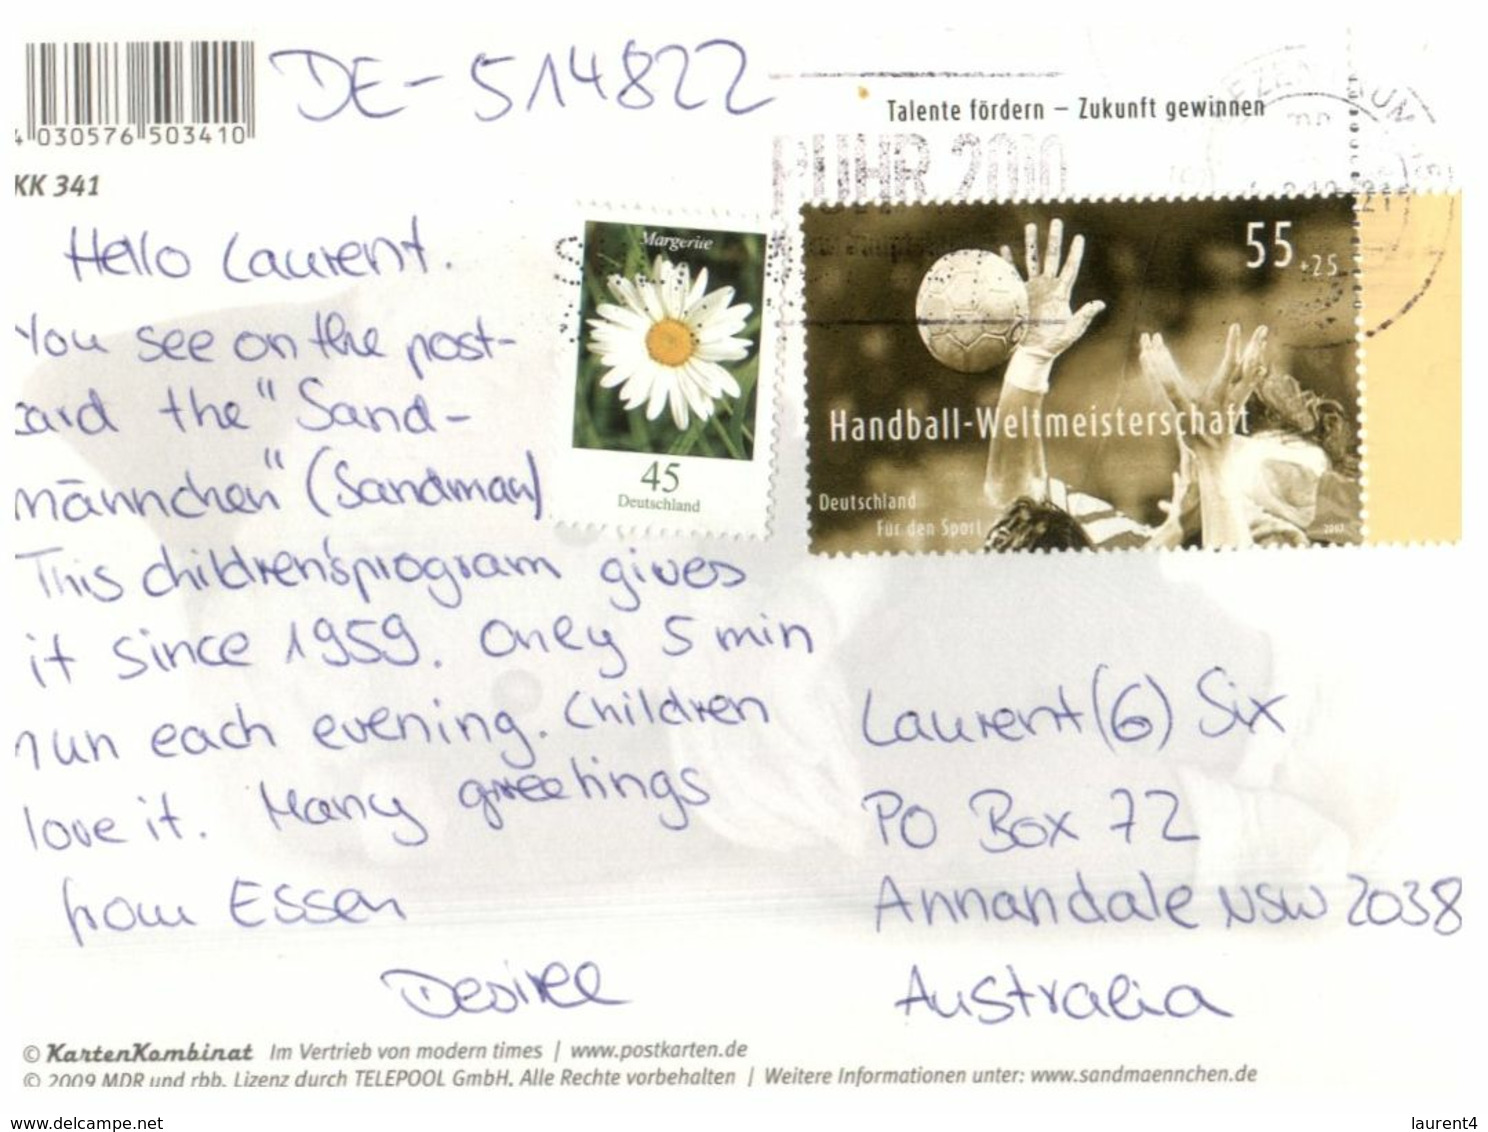 DE-514822
4 030576 503410
KK 341
Talente fördern – Zukunft gewinnen
RUHR 2010
Margerite
45
Deutschland
55 +25
Handball-Weltmeisterschaft
Deutschland
Für den Sport
2007
Hello Laurent.
You see on the post-
card the "Sand-
männchen" (Sandman)
This children'sprogram gives
it since 1959. Only 5 min
run each evening. Children
love it. Many greetings
from Essen
Desiree
Laurent (G) Six
PO Box 72
Annandale NSW 2038
Australia
© KartenKombinat Im Vertrieb von modern times | www.postkarten.de
© 2009 MDR und rbb. Lizenz durch TELEPOOL GmbH. Alle Rechte vorbehalten | Weitere Informationen unter: www.sandmaennchen.de
www.delcampe.net
laurent4